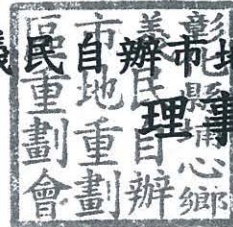 義民自辦市地
理事
彰化縣埔心鄉
義民自辦
市地重劃
區重劃會